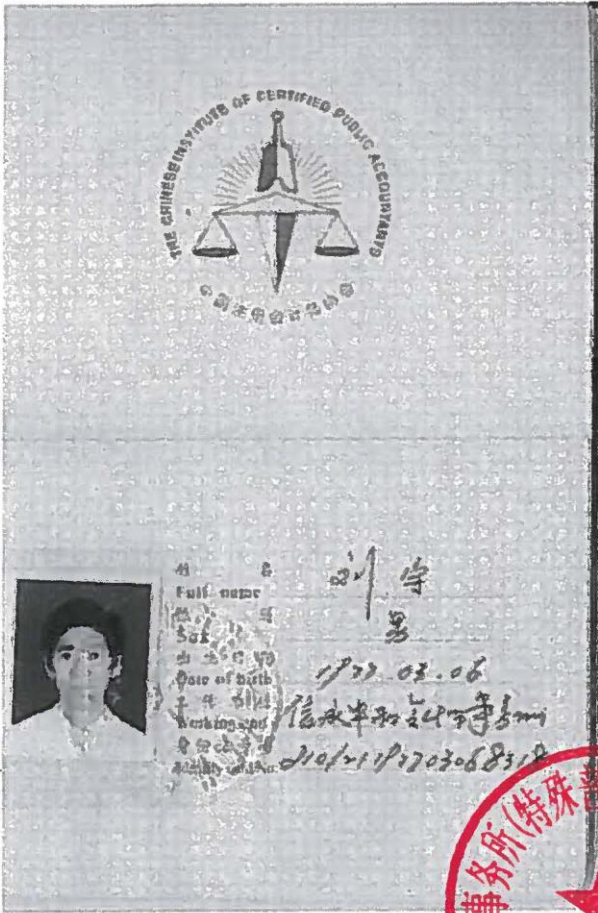 THE CHINESE INSTITUTE OF CERTIFIED PUBLIC ACCOUNTANTS
中国注册会计师协会
姓 名
Full name
刘宇
性 别
Sex
男
出生日期
Date of birth
1977.03.06
工作单位
Working unit
信永中和会计师事务所
身份证号码
Identity card No.
事务所(特殊普